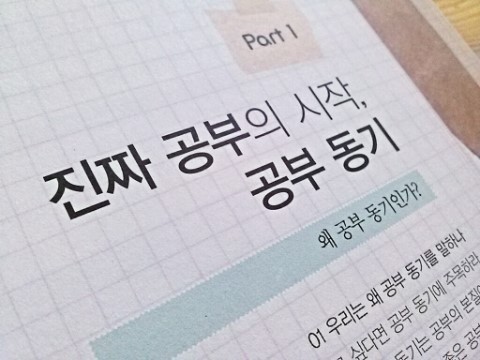 Part 1
진짜 공부의 시작,
공부 동기
왜 공부 동기인가?
01 우리는 왜 공부 동기를 말하나
싶다면 공부 동기에 주목하라
동기는 공부의 본질
좋은 공부